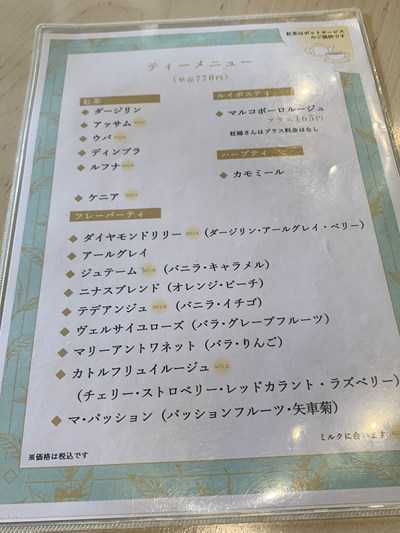 紅茶はポットサービス
のご提供です
ティーメニュー
(単品770円)
紅茶
ダージリン
アッサム
ウバ
ディンブラ
ルフナ
ケニア
ルイボスティ
マルコポーロルージュ
プラス165円
妊婦さんはプラス料金はなし
ハーブティ
カモミール
フレーバーティ
ダイヤモンドリリー (ダージリン・アールグレイ・ベリー)
アールグレイ
ジュテーム (バニラ・キャラメル)
ニナスブレンド (オレンジ・ピーチ)
テデアンジュ (バニラ・イチゴ)
ヴェルサイユローズ (バラ・グレープフルーツ)
マリーアントワネット (バラ・りんご)
カトルフリュイルージュ
(チェリー・ストロベリー・レッドカラント・ラズベリー)
マ・パッション (パッションフルーツ・矢車菊)
ミルクに合います
※価格は税込です